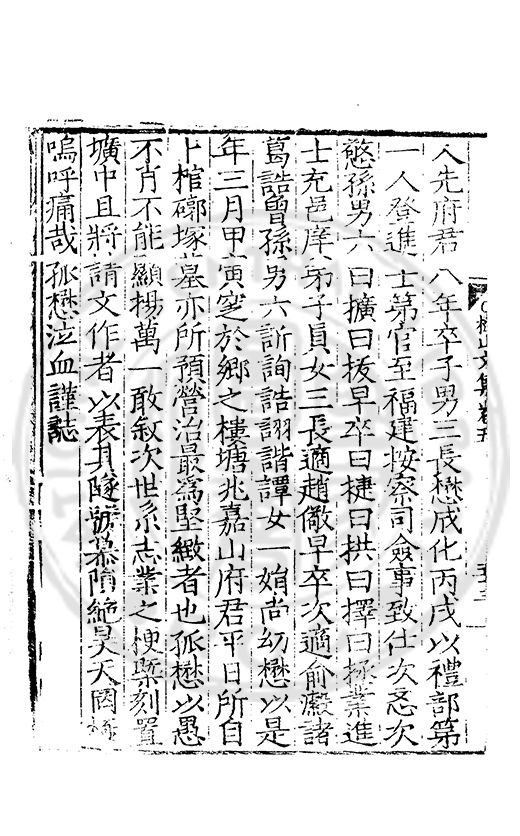 人先府君八年卒子男三長懋成化丙戌以禮部第
一人登進士第官至福建按察司僉事致仕次忞次
慜孫男六曰擴曰拔早卒曰捷曰拱曰擇曰拯業進
士充邑庠弟子員女三長適趙儆早卒次適俞瀫諸
葛誥曾孫男六訢詢誥詡諧譚女一娟尚幼懋以是
年三月甲寅窆於鄉之樓塘兆嘉山府君平日所自
卜棺槨塚墓亦所預營治最為堅緻者也孤懋以愚
不肖不能顯揚萬一敢敘次世系志業之梗槩刻置
壙中且將請文作者以表其隧號慕隕絕昊天罔極
嗚呼痛哉孤懋泣血謹誌
楓山文集卷五